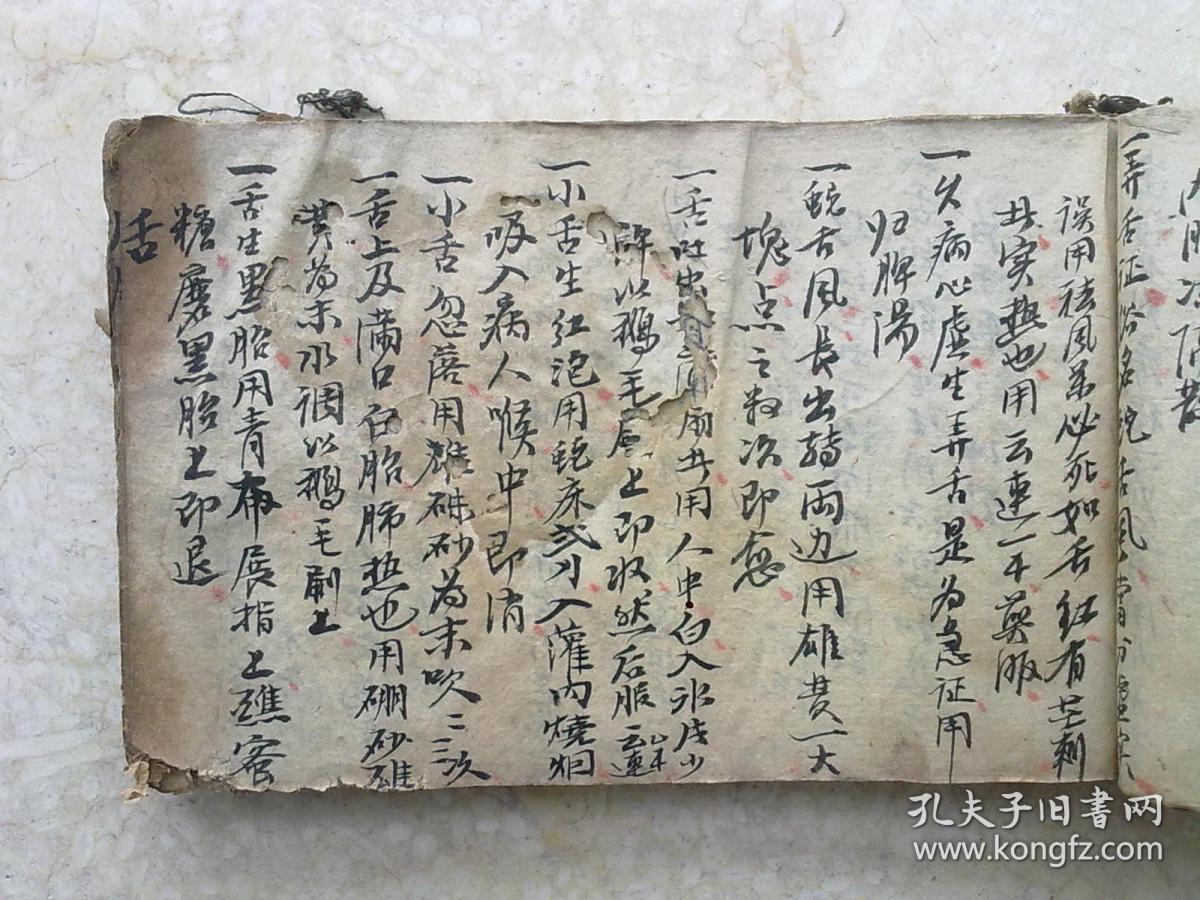 内服冰
一弄舌证俗名蛇舌风
误用祛风药必死如舌红有芒刺
此实热也用云连一千煎服
一久病心虚生弄舌是为急证用
归脾汤
一蛇舌风长出转两边用雄黄一大
块点之数次即愈
一舌吐出用人中白入氷片少
许以鹅毛上即收然后服云连
一小舌生红泡用蛇床弍刃入灌内燒烟
吸入病人喉中即消
一小舌忽落用雄硃砂为末吹二三次
一舌上及满口白胎肺热也用硼砂雄
黄为末水调以鹅毛刷上
一舌生黑胎用青布展指上蘸蜜
糖磨黑胎上即退
舌
孔夫子旧书网
www.kongfz.com